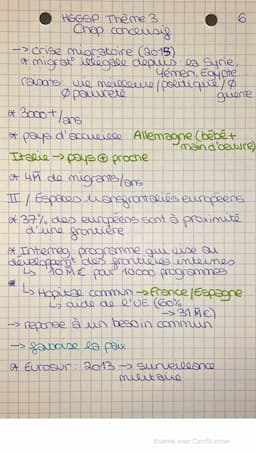 HGGSP Thème 3 6
Chap conclusif
→ crise migratoire (2015)
* migrat° illégale depuis la Syrie,
Yémen, Egypte
raisons: vie meilleure/politique/∅
∅ pauvreté guerre
* 3000 + /ans
* pays d'accueille: Allemagne (bébé +
main d'œuvre)
Italie → pays ⊕ proche
* 4M de migrants/ans
II / Espaces transfrontaliés européens
* 37% des européens sont à proximité
d'une frontière
* Interreg: programme qui vise au
développemt des frontières internes
↳ 10 M€ par 10000 programmes
* ↳ Hopital commun → France/Espagne
↳ aide de l'UE (60%
→ 31 M€)
→ réponse à un besoin commun
→ favorise la paix
* Eurosur: 2013 → surveillance
militaire
Scanné avec CamScanner